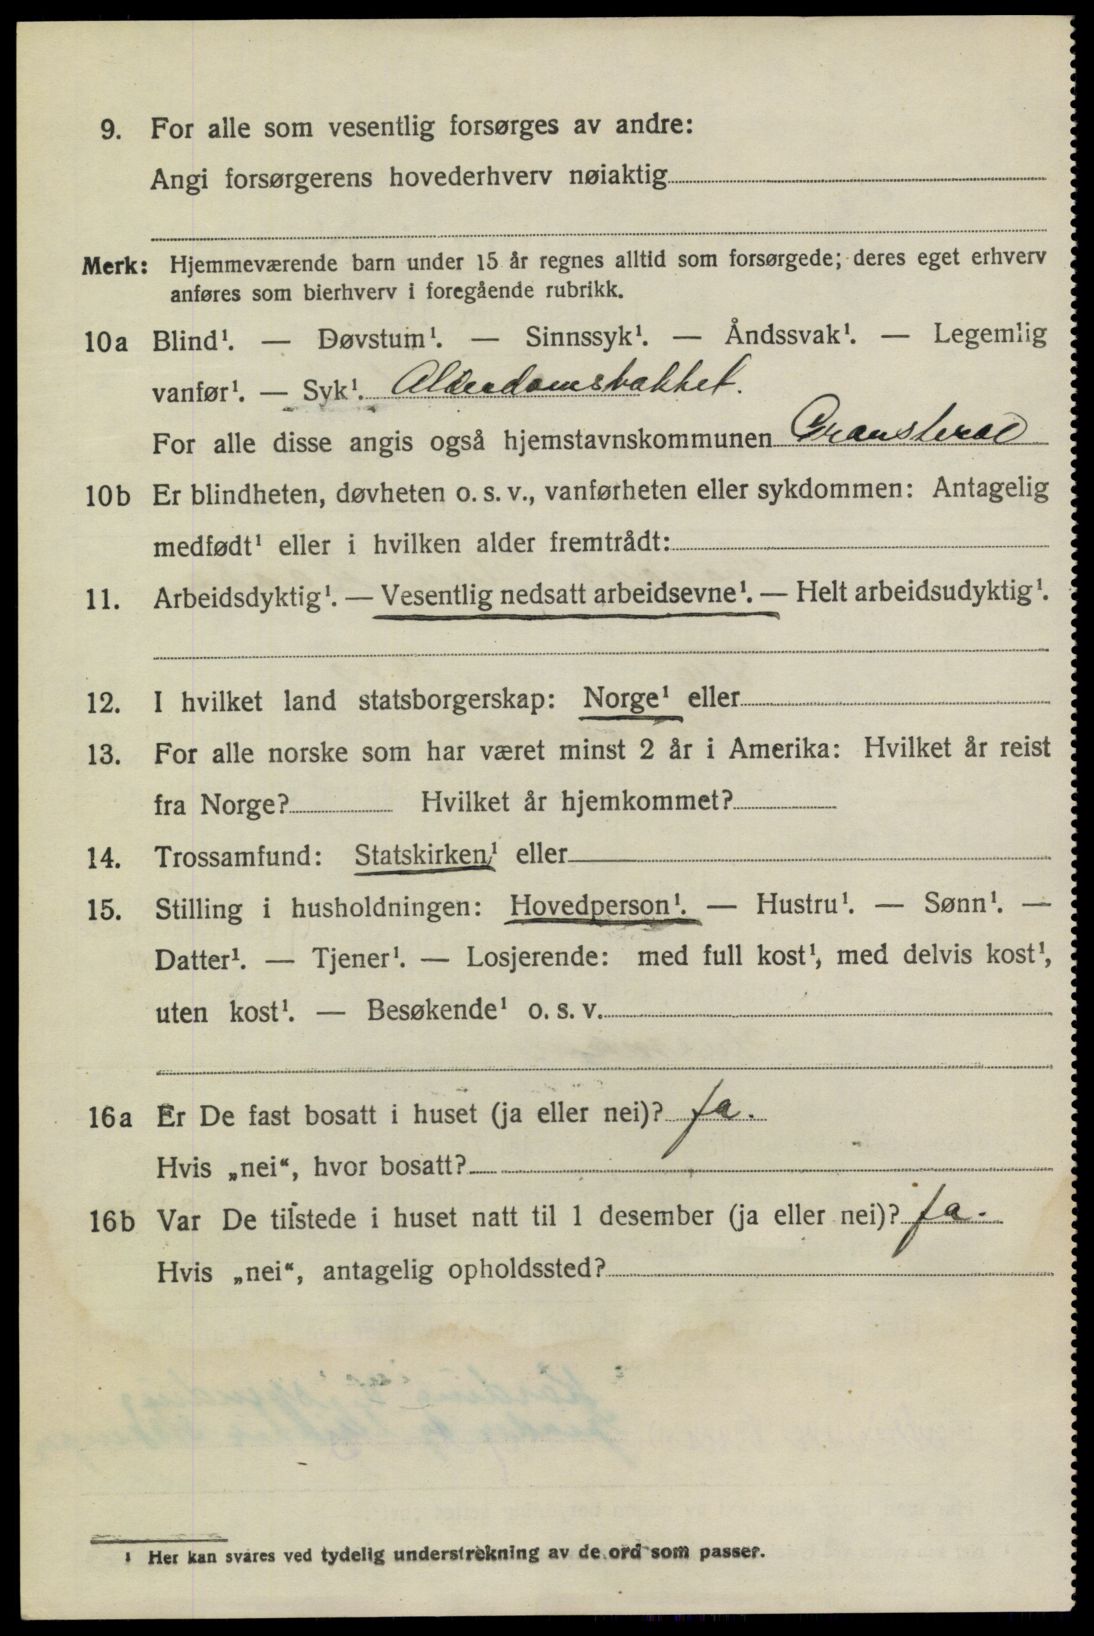 9. For alle som vesentlig forsørges av andre:
Angi forsørgerens hovederhverv nøiaktig
Merk: Hjemmeværende barn under 15 år regnes alltid som forsørgede; deres eget erhverv
anføres som bierhverv i foregående rubrikk.
10a Blind¹. — Døvstum¹. — Sinnssyk¹. — Åndssvak¹. — Legemlig
vanfør¹. — Syk¹. Alderdomsvakket.
For alle disse angis også hjemstavnskommunen
10b Er blindheten, døvheten o. s. v., vanførheten eller sykdommen: Antagelig
medfødt¹ eller i hvilken alder fremtrådt:
11. Arbeidsdyktig¹. — Vesentlig nedsatt arbeidsevne¹. — Helt arbeidsudyktig¹.
12. I hvilket land statsborgerskap: Norge¹ eller
13. For alle norske som har været minst 2 år i Amerika: Hvilket år reist
fra Norge? Hvilket år hjemkommet?
14. Trossamfund: Statskirken,¹ eller
15. Stilling i husholdningen: Hovedperson¹. — Hustru¹. — Sønn¹. —
Datter¹. — Tjener¹. — Losjerende: med full kost¹, med delvis kost¹,
uten kost¹. — Besøkende¹ o. s. v.
16a Er De fast bosatt i huset (ja eller nei)? ja.
Hvis „nei“, hvor bosatt?
16b Var De tilstede i huset natt til 1 desember (ja eller nei)? ja.
Hvis „nei“, antagelig opholdssted?
¹ Her kan svares ved tydelig understrekning av de ord som passer.